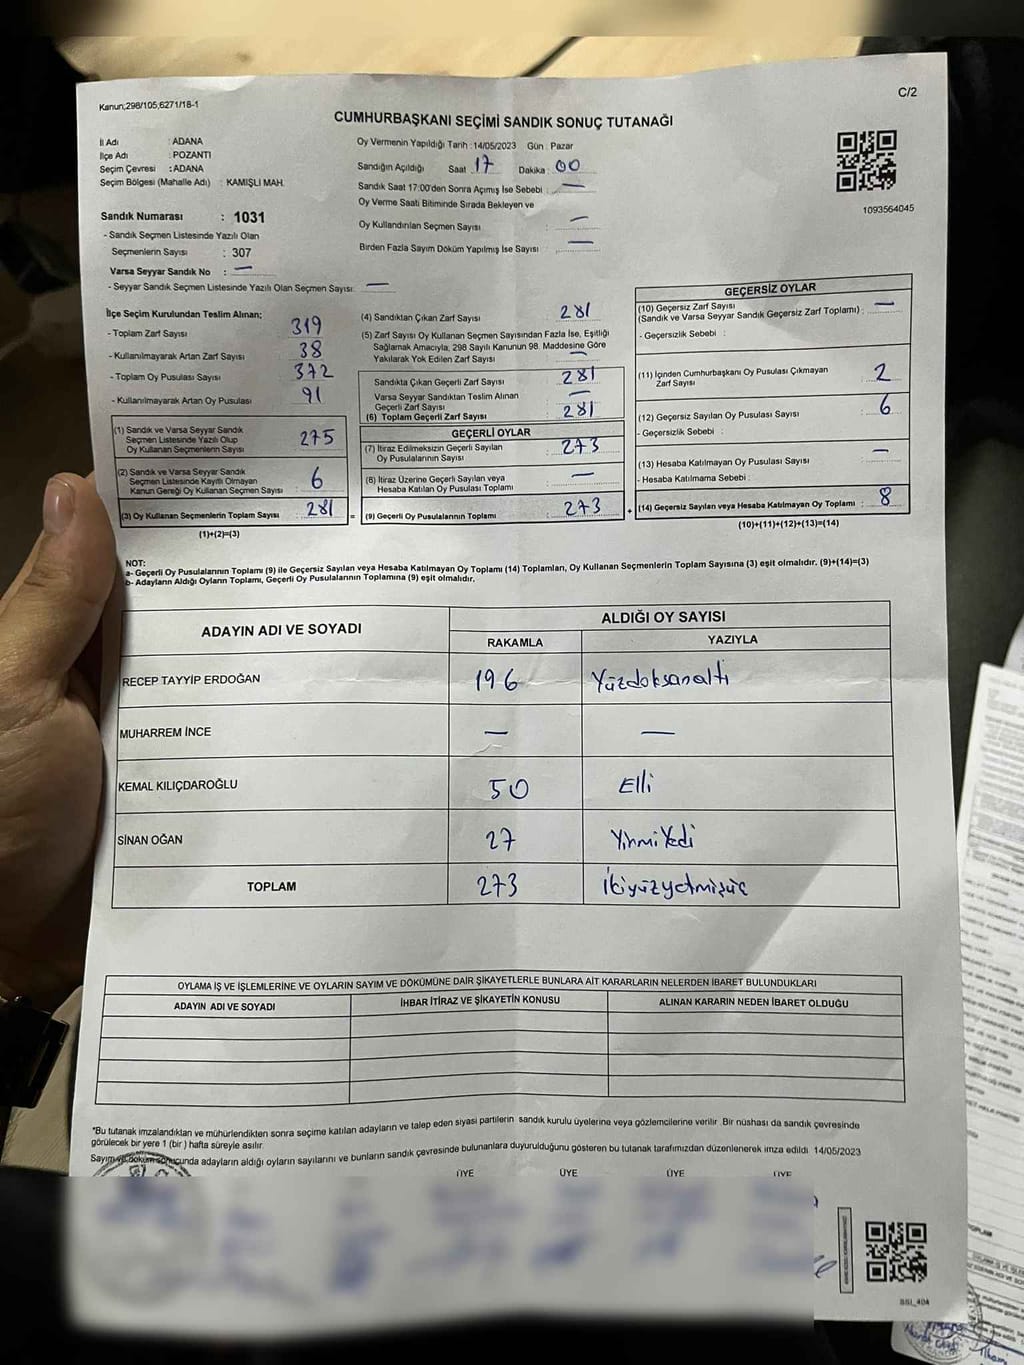 Kanun;298/105;6271/18-1
C/2
CUMHURBAŞKANI SEÇİMİ SANDIK SONUÇ TUTANAĞI
İl Adı : ADANA
İlçe Adı : POZANTI
Seçim Çevresi : ADANA
Seçim Bölgesi (Mahalle Adı) : KAMIŞLI MAH.
Oy Vermenin Yapıldığı Tarih : 14/05/2023 Gün : Pazar
Sandığın Açıldığı Saat 17 Dakika : 00
Sandık Saat 17:00'den Sonra Açımış İse Sebebi : —
Oy Verme Saati Bitiminde Sırada Bekleyen ve
Oy Kullandırılan Seçmen Sayısı : —
Birden Fazla Sayım Döküm Yapılmış İse Sayısı : —
1093564045
Sandık Numarası : 1031
- Sandık Seçmen Listesinde Yazılı Olan
Seçmenlerin Sayısı : 307
Varsa Seyyar Sandık No : —
- Seyyar Sandık Seçmen Listesinde Yazılı Olan Seçmen Sayısı: —
İlçe Seçim Kurulundan Teslim Alınan;
- Toplam Zarf Sayısı 319
- Kullanılmayarak Artan Zarf Sayısı 38
- Toplam Oy Pusulası Sayısı 372
- Kullanılmayarak Artan Oy Pusulası 91
(1) Sandık ve Varsa Seyyar Sandık
Seçmen Listesinde Yazılı Olup
Oy Kullanan Seçmenlerin Sayısı 275
(2) Sandık ve Varsa Seyyar Sandık
Seçmen Listesinde Kayıtlı Olmayan
Kanun Gereği Oy Kullanan Seçmen Sayısı : 6
(3) Oy Kullanan Seçmenlerin Toplam Sayısı : 281
(1)+(2)=(3)
(4) Sandıktan Çıkan Zarf Sayısı : 281
(5) Zarf Sayısı Oy Kullanan Seçmen Sayısından Fazla İse, Eşitliği
Sağlamak Amacıyla, 298 Sayılı Kanunun 98. Maddesine Göre
Yakılarak Yok Edilen Zarf Sayısı : —
Sandıkta Çıkan Geçerli Zarf Sayısı : 281
Varsa Seyyar Sandıktan Teslim Alınan
Geçerli Zarf Sayısı : —
(6) Toplam Geçerli Zarf Sayısı : 281
GEÇERLİ OYLAR
(7) İtiraz Edilmeksizin Geçerli Sayılan
Oy Pusulalarının Sayısı : 273
(8) İtiraz Üzerine Geçerli Sayılan veya
Hesaba Katılan Oy Pusulası Toplamı : —
= (9) Geçerli Oy Pusulalarının Toplamı : 273
GEÇERSİZ OYLAR
(10) Geçersiz Zarf Sayısı
(Sandık ve Varsa Seyyar Sandık Geçersiz Zarf Toplamı) : —
- Geçersizlik Sebebi :
(11) İçinden Cumhurbaşkanı Oy Pusulası Çıkmayan
Zarf Sayısı : 2
(12) Geçersiz Sayılan Oy Pusulası Sayısı : 6
- Geçersizlik Sebebi :
(13) Hesaba Katılmayan Oy Pusulası Sayısı : —
- Hesaba Katılmama Sebebi :
+ (14) Geçersiz Sayılan veya Hesaba Katılmayan Oy Toplamı : 8
(10)+(11)+(12)+(13)=(14)
NOT:
a- Geçerli Oy Pusulalarının Toplamı (9) ile Geçersiz Sayılan veya Hesaba Katılmayan Oy Toplamı (14) Toplamları, Oy Kullanan Seçmenlerin Toplam Sayısına (3) eşit olmalıdır. (9)+(14)=(3)
b- Adayların Aldığı Oyların Toplamı, Geçerli Oy Pusulalarının Toplamına (9) eşit olmalıdır.
ADAYIN ADI VE SOYADI ALDIĞI OY SAYISI
RAKAMLA YAZIYLA
RECEP TAYYİP ERDOĞAN 196 Yüzdoksanaltı
MUHARREM İNCE — —
KEMAL KILIÇDAROĞLU 50 Elli
SİNAN OĞAN 27 YirmiYedi
TOPLAM 273 İkiyüzyetmişüç
OYLAMA İŞ VE İŞLEMLERİNE VE OYLARIN SAYIM VE DÖKÜMÜNE DAİR ŞİKAYETLERLE BUNLARA AİT KARARLARIN NELERDEN İBARET BULUNDUKLARI
ADAYIN ADI VE SOYADI İHBAR İTİRAZ VE ŞİKAYETİN KONUSU ALINAN KARARIN NEDEN İBARET OLDUĞU
*Bu tutanak imzalandıktan ve mühürlendikten sonra seçime katılan adayların ve talep eden siyasi partilerin sandık kurulu üyelerine veya gözlemcilerine verilir. Bir nüshası da sandık çevresinde
görülecek bir yere 1 (bir ) hafta süreyle asılır.
Sayım ve döküm sonucunda adayların aldığı oyların sayılarını ve bunların sandık çevresinde bulunanlara duyurulduğunu gösteren bu tutanak tarafımızdan düzenlenerek imza edildi 14/05/2023
ÜYE ÜYE ÜYE ÜYE